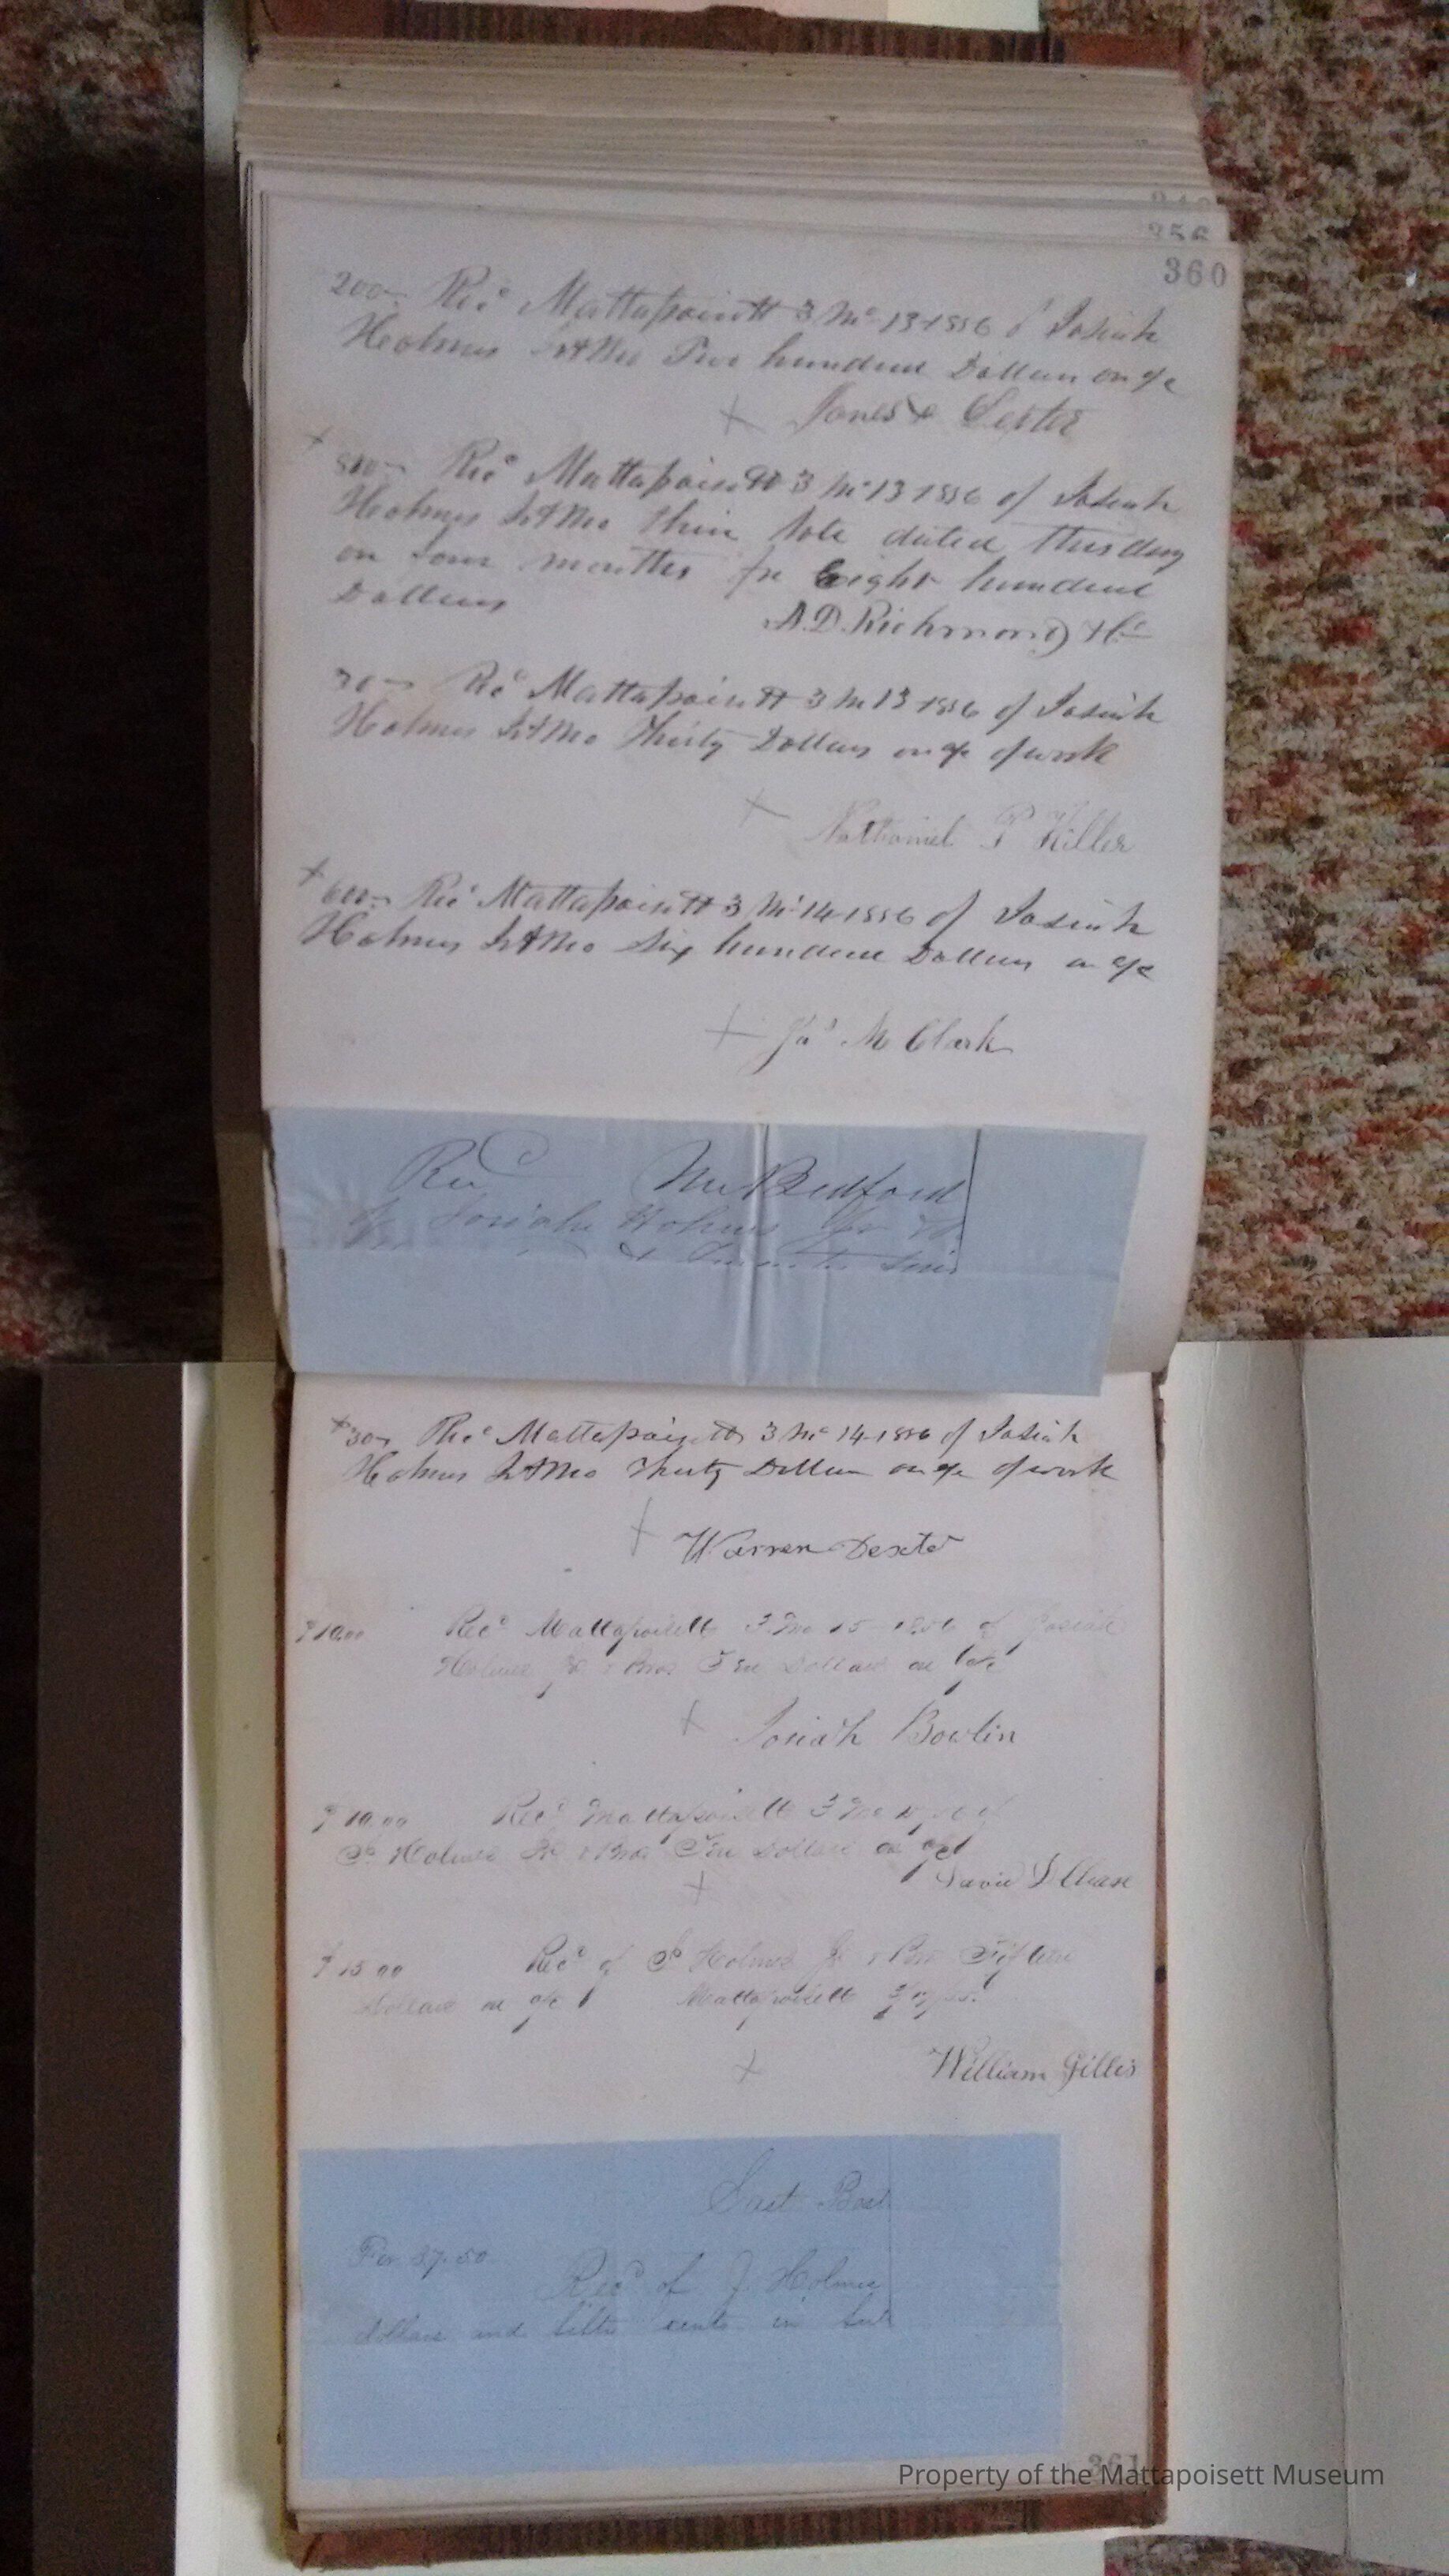 356
360
200 Rec<sup>d</sup> Mattapoisett 3 Mo 13 1856 of Josiah
Holmes Jr & Bro Two hundred Dollars on a/c
+ Jones &
+
800 Rec<sup>d</sup> Mattapoisett 3 Mo 13 1856 of Josiah
Holmes Jr & Bro their Note dated this day
on four months for Eight hundred
Dollars A. D. Richmond & Co
30 Rec<sup>d</sup> Mattapoisett 3 Mo 13 1856 of Josiah
Holmes Jr & Bro Thirty Dollars on a/c of work
+ Nathaniel P Hiller
+
600 Rec<sup>d</sup> Mattapoisett 3 Mo 14 1856 of Josiah
Holmes Jr & Bro Six hundred Dollars on a/c
+ Jas M Clark
Rec N Bedford
of Josiah Holmes Jr &
+ 30 Rec<sup>d</sup> Mattapoisett 3 Mo 14 1856 of Josiah
Holmes Jr & Bro Thirty Dollars on a/c of work
+ Warren Dexter
$10.00 Rec<sup>d</sup> Mattapoisett 3 Mo 15 1856 of Josiah
Holmes Jr & Bro Ten Dollars on a/c
+ Josiah Bowlin
$10.00 Rec<sup>d</sup> Mattapoisett 3 Mo of
J. Holmes Jr & Bro Ten Dollars on a/c
+ David Chase
$15.00 Rec<sup>d</sup> of J Holmes Jr & Bro Fifteen
Dollars on a/c Mattapoisett
+ William Gillis
East Bost
For 37.50
Rec<sup>d</sup> of J. Holmes
dollars and fifty cents in full
361
Property of the Mattapoisett Museum